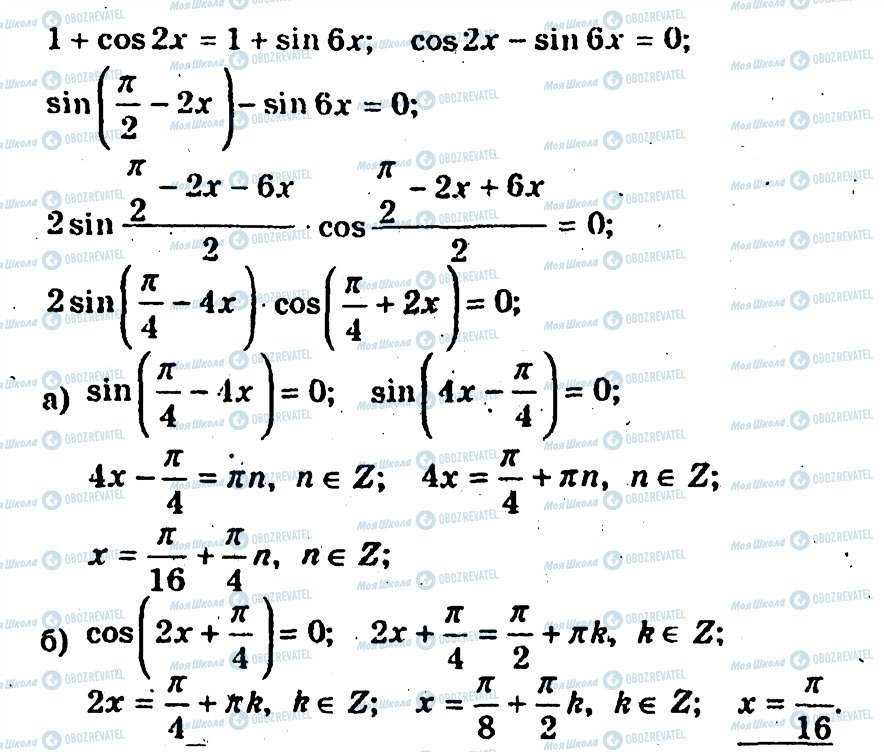 1 + cos 2x = 1 + sin 6x; cos 2x − sin 6x = 0;
sin(π/2 − 2x) − sin 6x = 0;
2 sin (π/2 − 2x − 6x)/2 · cos (π/2 − 2x + 6x)/2 = 0;
2 sin(π/4 − 4x) · cos(π/4 + 2x) = 0;
а) sin(π/4 − 4x) = 0; sin(4x − π/4) = 0;
4x − π/4 = πn, n ∈ Z; 4x = π/4 + πn, n ∈ Z;
x = π/16 + π/4 n, n ∈ Z;
б) cos(2x + π/4) = 0; 2x + π/4 = π/2 + πk, k ∈ Z;
2x = π/4 + πk, k ∈ Z; x = π/8 + π/2 k, k ∈ Z; x = π/16.
Моя Школа OBOZREVATEL